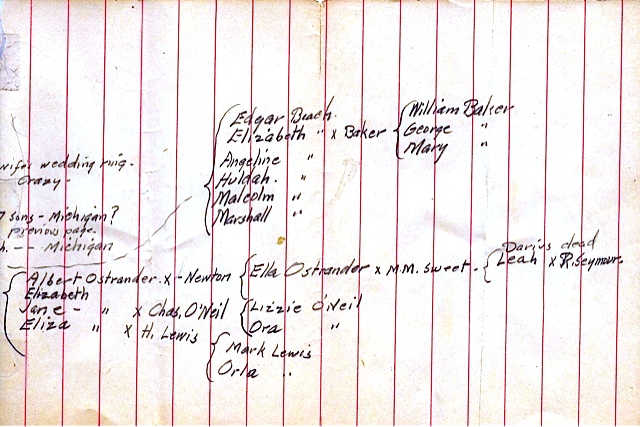 Edgar Beach.
Elizabeth " x Baker
Angeline "
Huldah. "
Malcolm "
Marshall "
William Baker
George "
Mary "
wifes wedding ring.
Crazy -
7 sons - Michigan?
previous page.
h. - - Michigan
Albert Ostrander. x - Newton
Elizabeth
Jane - " x Chas. O'Neil
Eliza " x H. Lewis
Ella Ostrander x M.M. Sweet.
Darius dead
Leah x R. Seymour.
Lizzie O'Neil
Ora "
Mark Lewis
Orla "